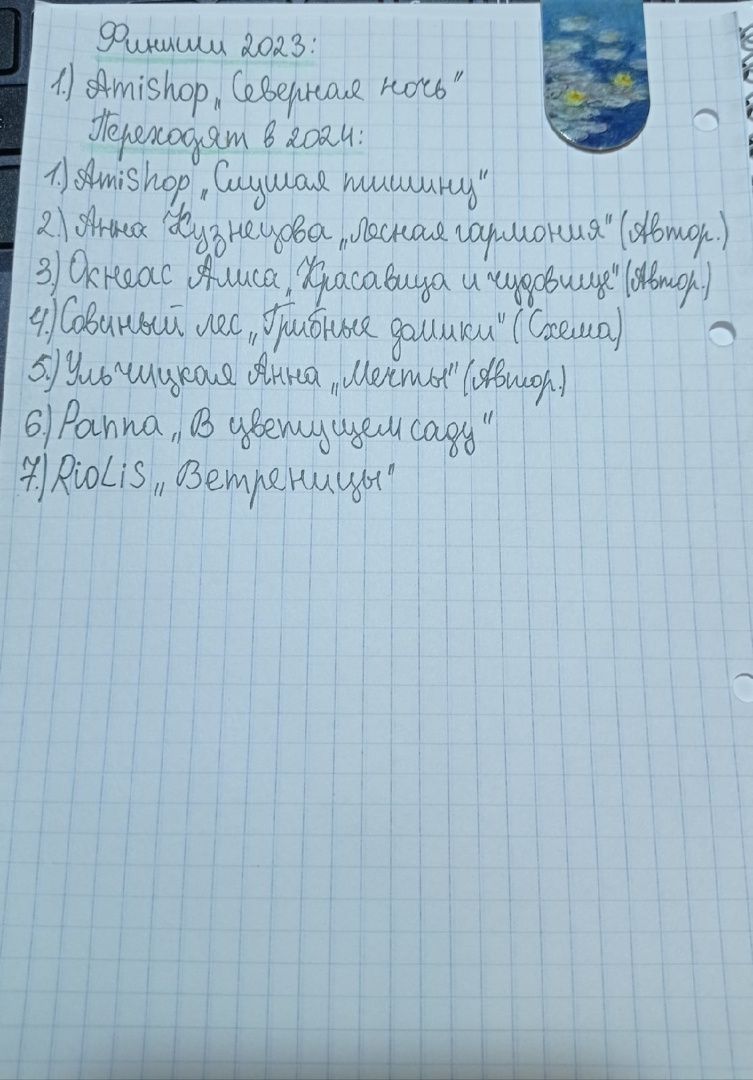 Финиши 2023:
1.) Amishop „Северная ночь"
Переходят в 2024:
1.) Amishop „Слушая тишину"
2.) Анна Кузнецова „Лесная гармония" (Автор.)
3.) Окнеас Алиса „Красавица и чудовище" (Автор.)
4.) Совиный лес „Грибные домики" (Схема)
5.) Ульчицкая Анна „Мечты" (Автор.)
6.) Panna „В цветущем саду"
7.) RioLiS „Ветреницы"